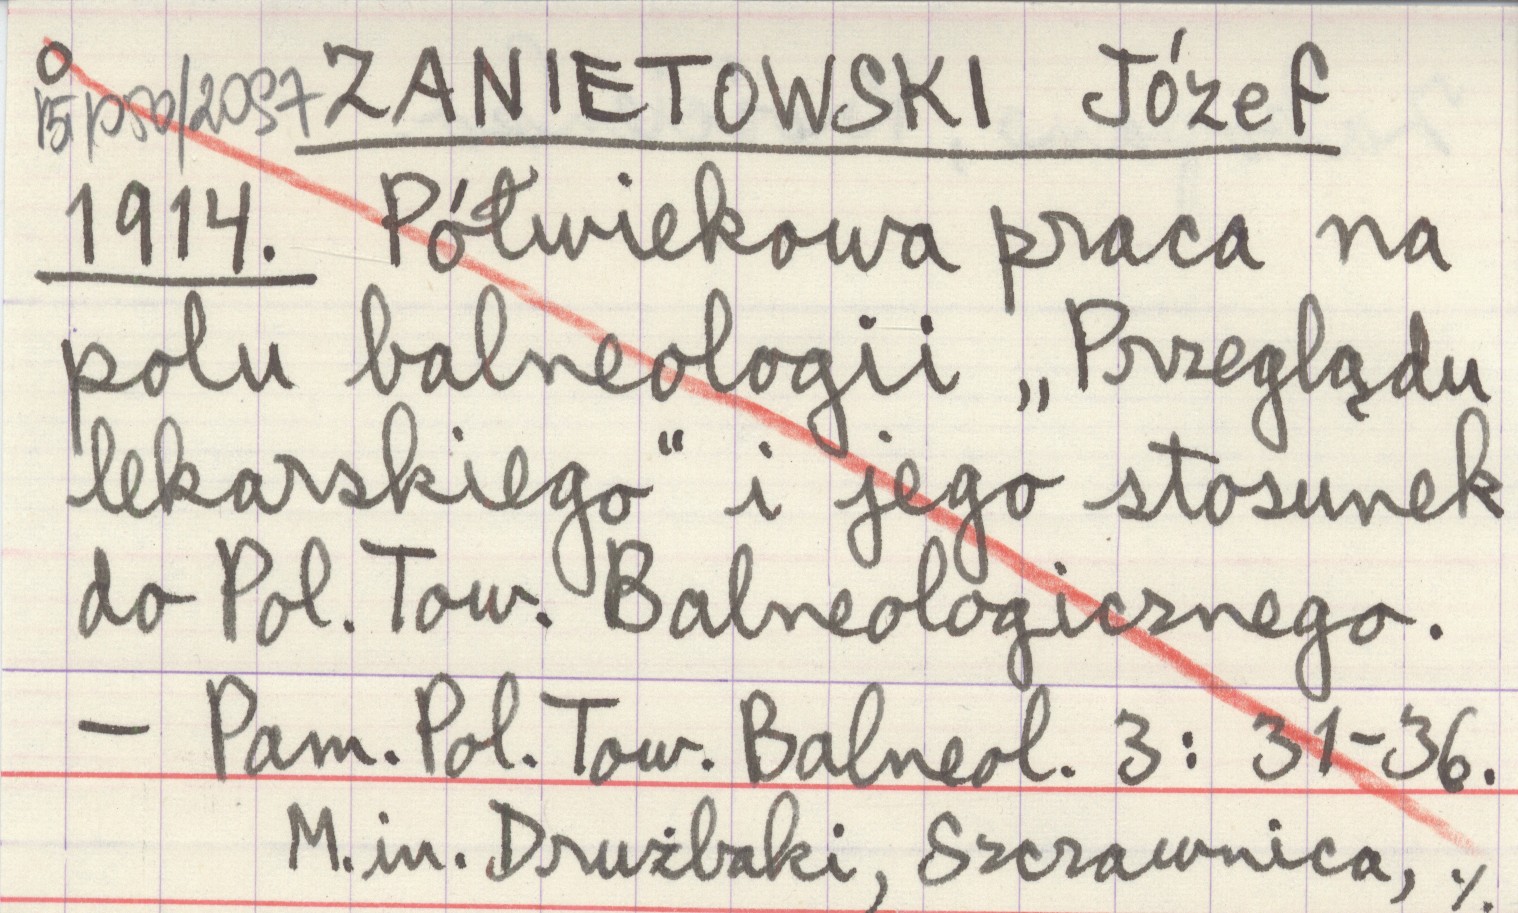 ZANIETOWSKI Józef
1914. Półwiekowa praca na
polu balneologii „Przeglądu
lekarskiego" i jego stosunek
do Pol. Tow. Balneologicznego.
— Pam. Pol. Tow. Balneol. 3: 31-36.
M. in. Drużbaki, Szczawnica, ./.